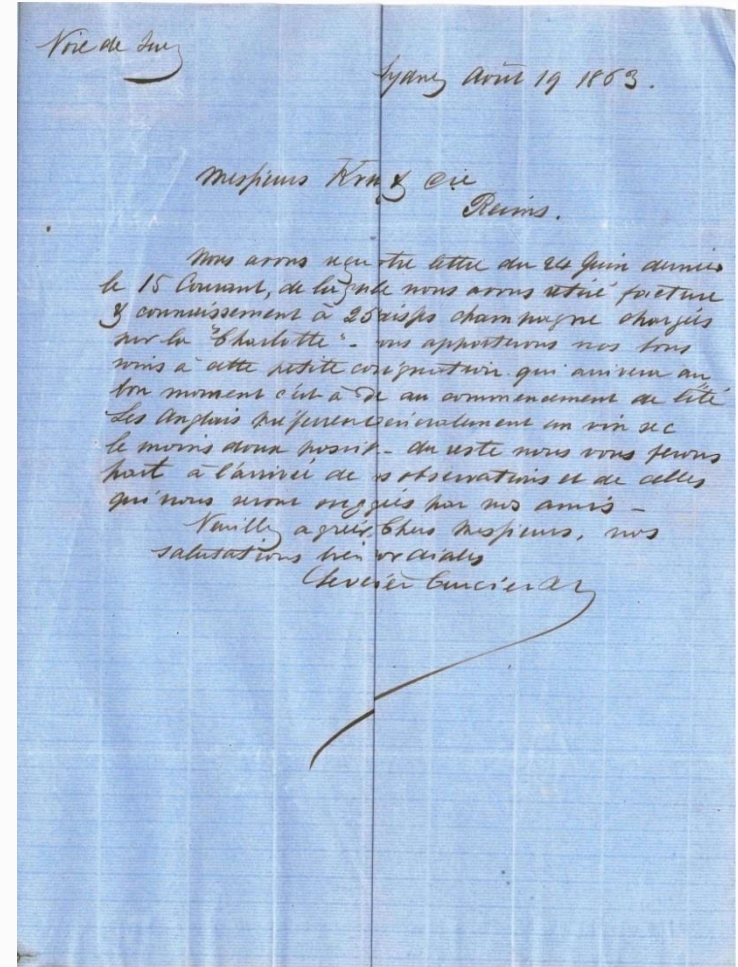 Voie de Suez
Sydney Août 19 1863.
Messieurs Krug & Cie
Reims.
Nous avons reçu votre lettre du 24 Juin dernier
le 15 Courant, de laquelle nous avons retiré facture
& connaissement à 25 caisses champagne chargées
sur la "Charlotte" - nous apporterons nos bons
soins à cette petite consignation qui arrivera au
bon moment c'est à dire au commencement de l'été
Les Anglais préfèrent généralement un vin sec
le moins doux possible - du reste nous vous ferons
part à l'arrivée de nos observations et de celles
qui nous seront suggérées par nos amis -
Veuillez agréer, Chers Messieurs, nos
salutations bien cordiales